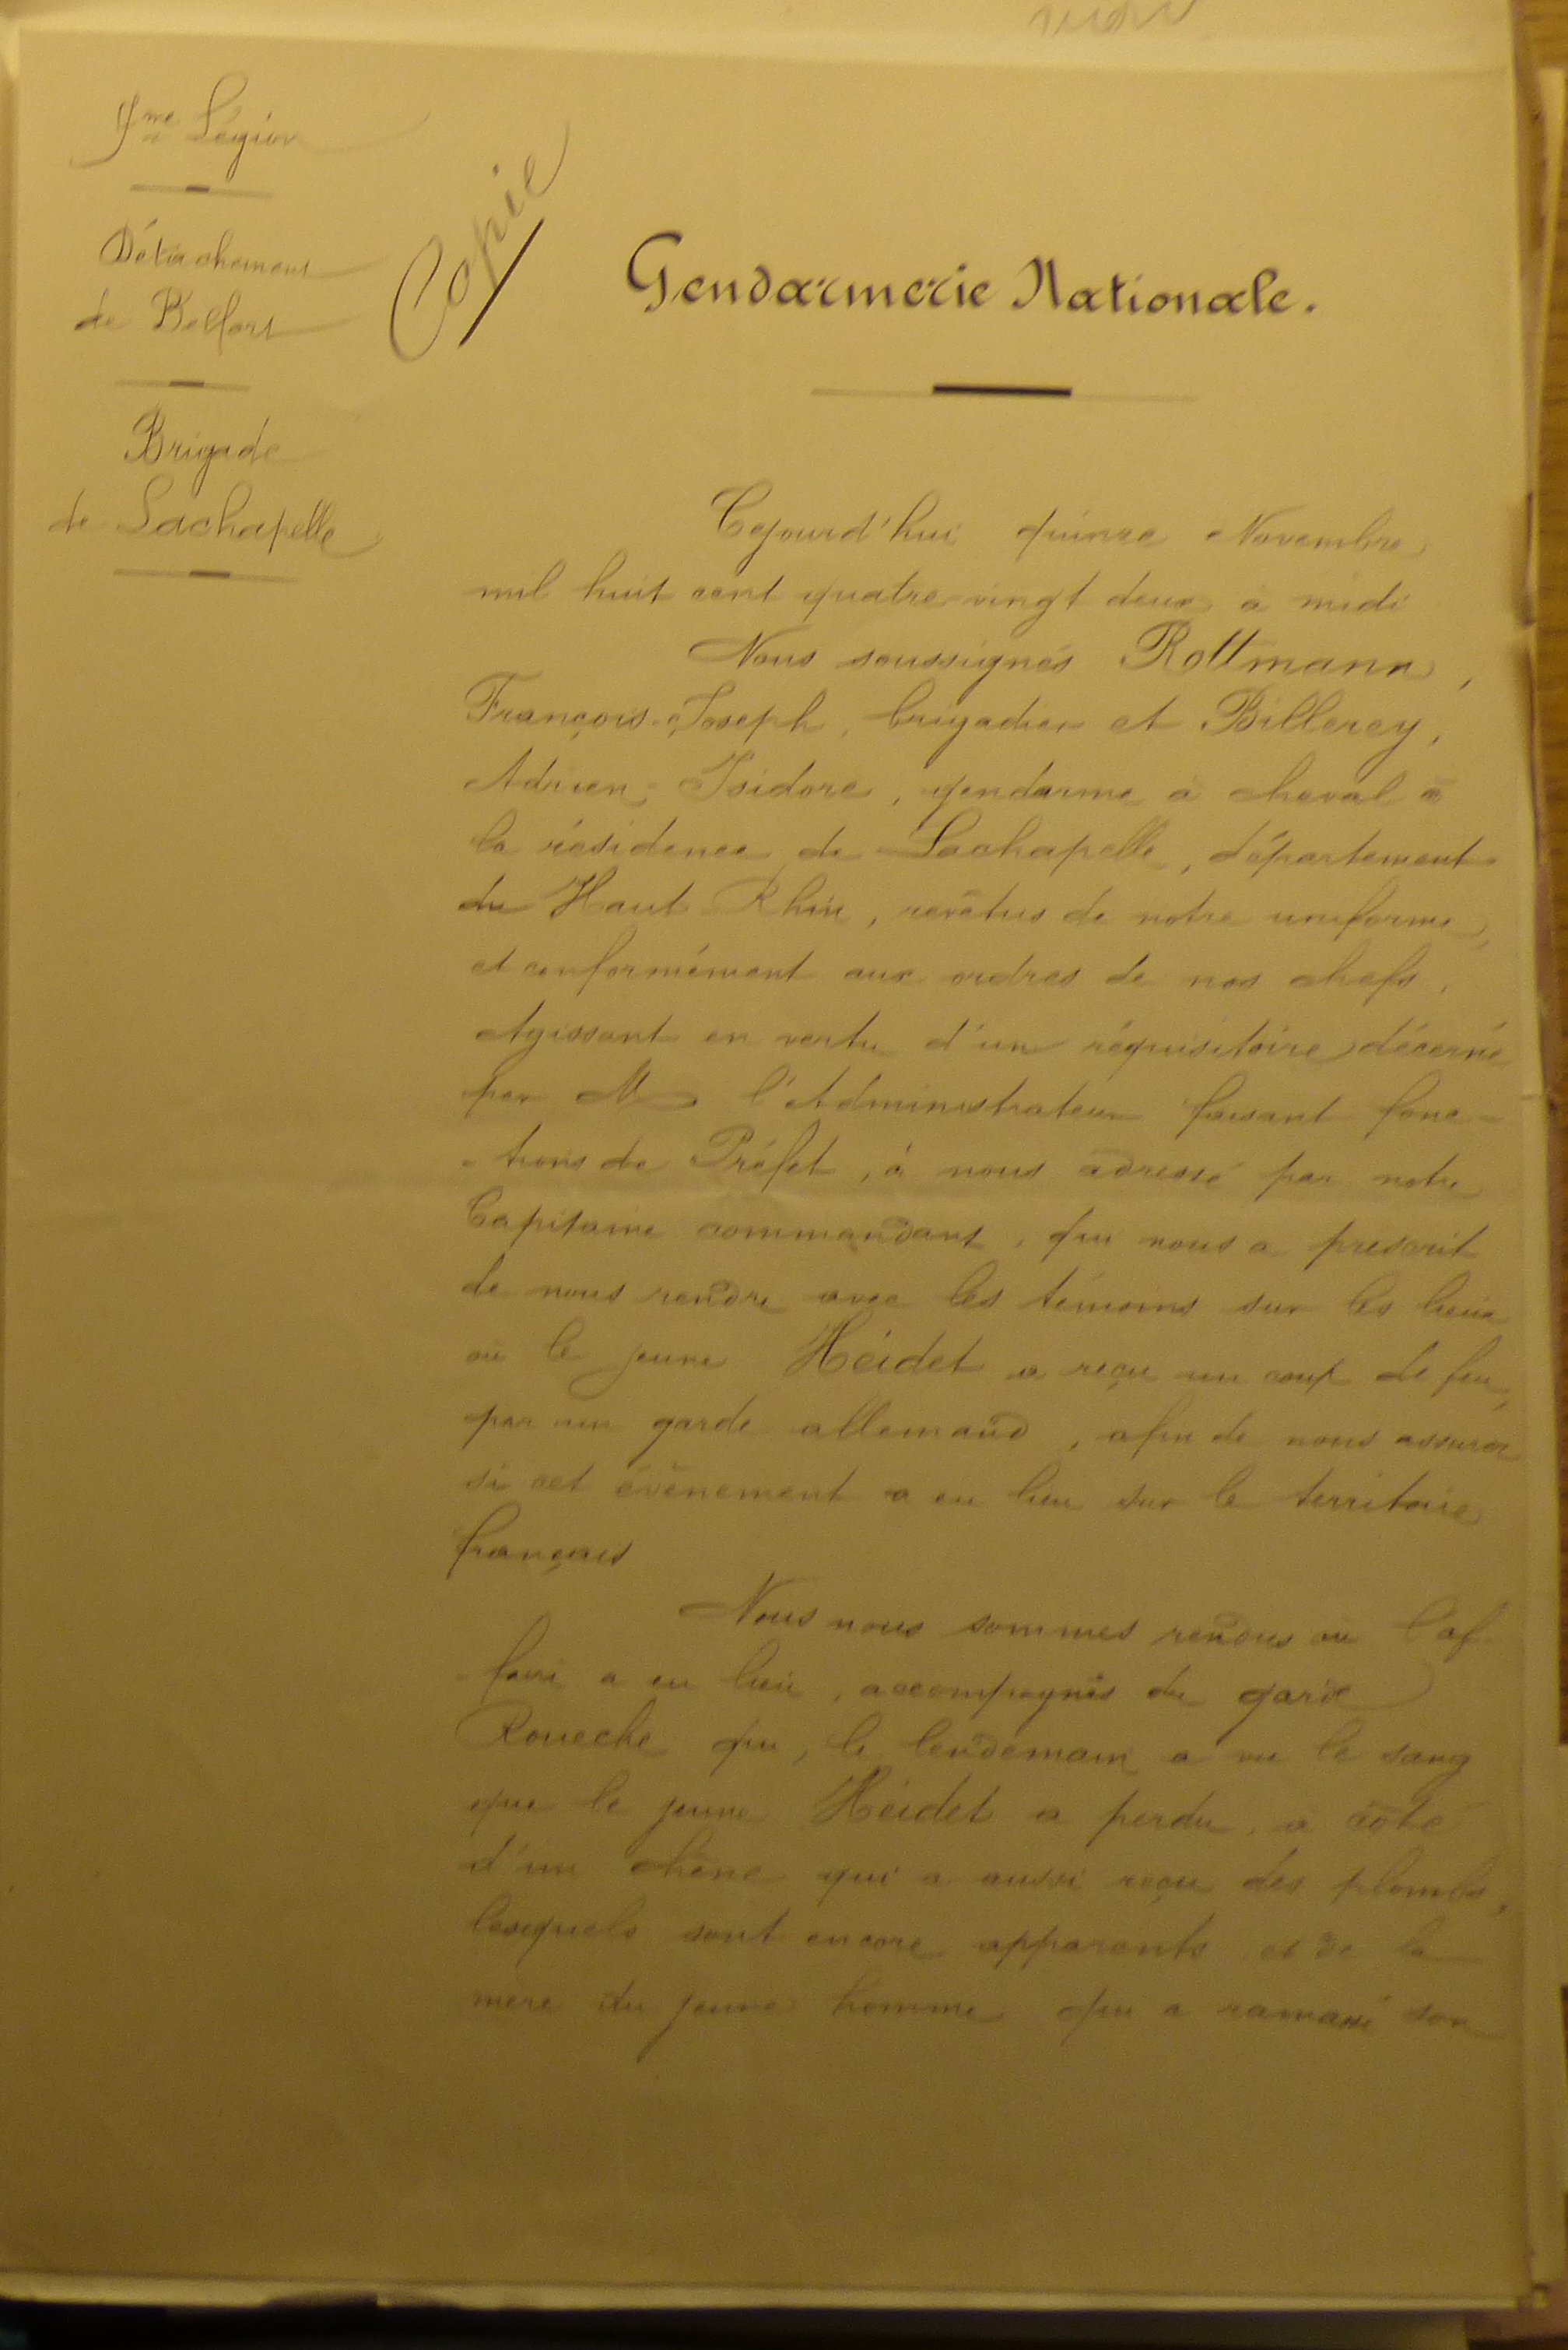 7me Légion
Détachement
de Belfort
Brigade
de Lachapelle
Copie
Gendarmerie Nationale.
Cejourd'hui quinze Novembre
mil huit cent quatre-vingt deux à midi
Nous soussignés Rottmann,
François-Joseph, brigadier et Billerey,
Adrien-Isidore, gendarme à cheval à
la résidence de Lachapelle, département
du Haut-Rhin, revêtus de notre uniforme,
et conformément aux ordres de nos chefs.
Agissant en vertu d'un réquisitoire décerné
par M l'Administrateur faisant fonc-
-tions de Préfet, à nous adressé par notre
Capitaine commandant, qui nous a prescrit
de nous rendre avec les témoins sur les lieux
où le jeune Heidet a reçu un coup de feu,
par un garde allemand, afin de nous assurer
si cet évènement a eu lieu sur le territoire
français
Nous nous sommes rendus où l'af-
-faire a eu lieu, accompagnés du garde
Roueche qui, le lendemain a vu le sang
que le jeune Heidet a perdu, à côté
d'un chêne qui a aussi reçu des plombs,
lesquels sont encore apparents et de la
mère du jeune homme qui a ramassé son